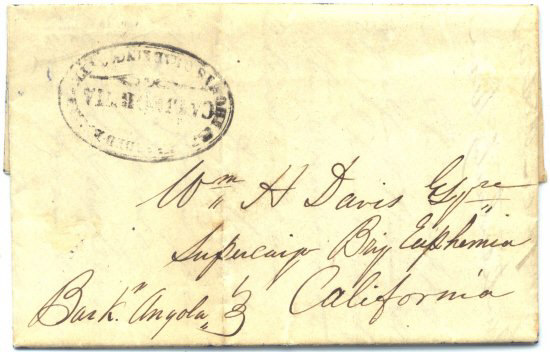 CALIFORNIA
Wm H Davis Esqre
Supercargo Brig Euphemia
California
Bark Angola